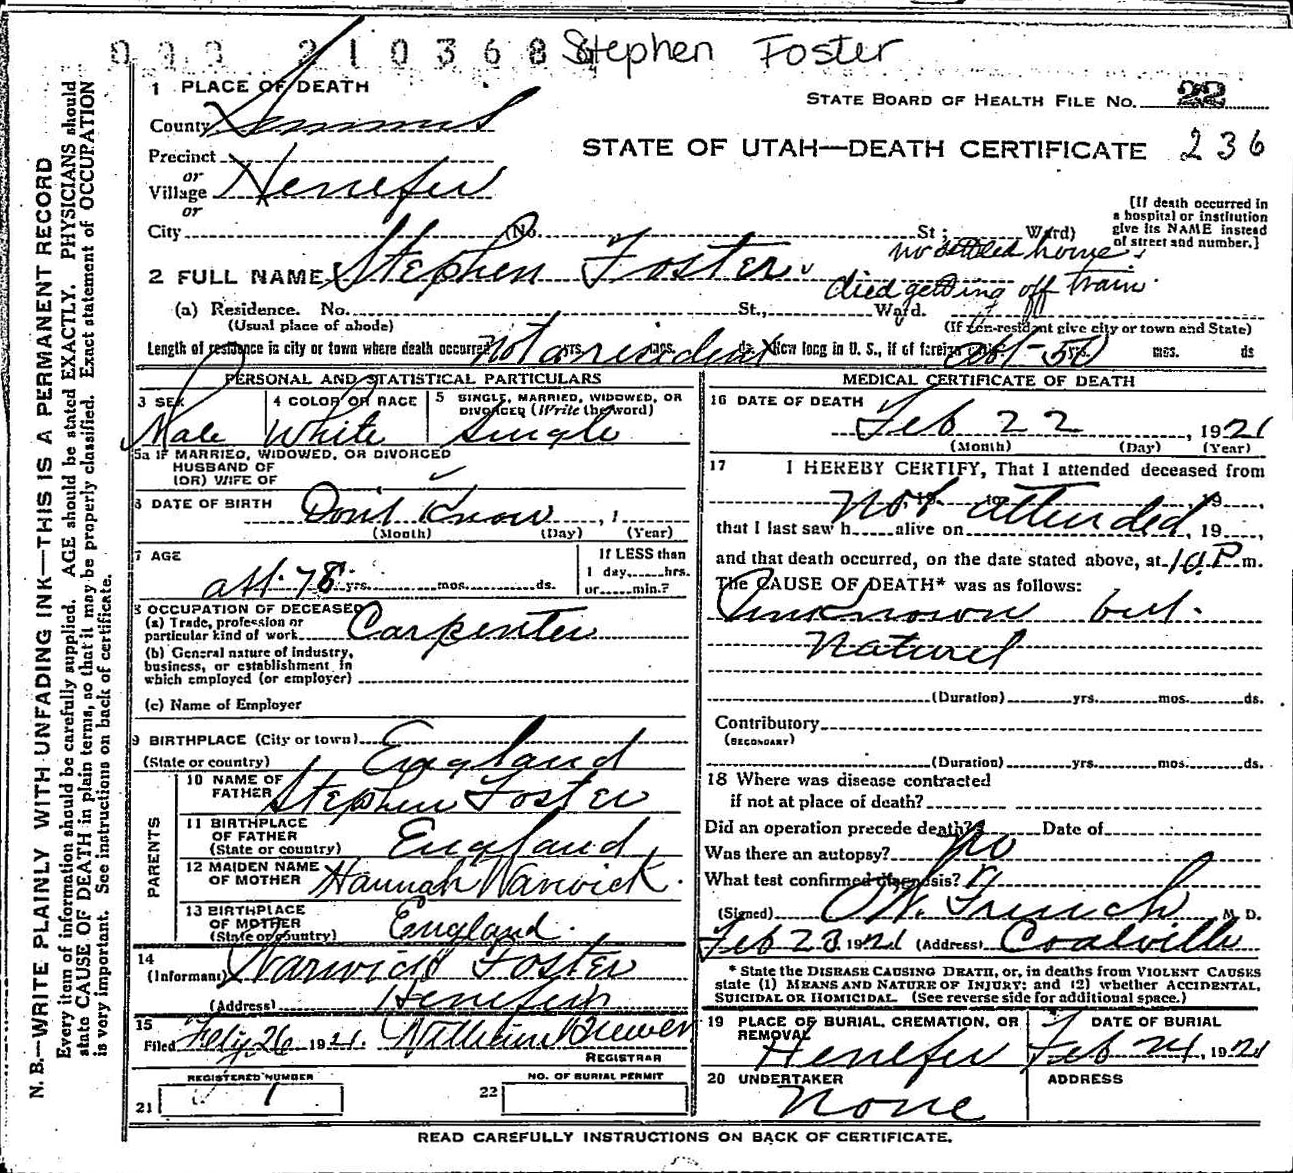 Stephen Foster
1 PLACE OF DEATH
STATE BOARD OF HEALTH FILE No. 22
County Summit
STATE OF UTAH—DEATH CERTIFICATE 236
Precinct
or
Village Henefer
or
City (No. St; Ward)
[If death occurred in
a hospital or institution
give its NAME instead
of street and number.]
no settled home
2 FULL NAME Stephen Foster
died getting off train.
(a) Residence. No. St., Ward.
(Usual place of abode)
(If non-resident give city or town and State)
Length of residence in city or town where death occurred not a resident yrs. mos. ds. How long in U. S., if of foreign abt-50 yrs. mos. ds
PERSONAL AND STATISTICAL PARTICULARS
3 SEX
Male
4 COLOR OR RACE
White
5 SINGLE, MARRIED, WIDOWED, OR
DIVORCED (Write the word)
Single
5a IF MARRIED, WIDOWED, OR DIVORCED
HUSBAND OF
(OR) WIFE OF
6 DATE OF BIRTH Dont Know , 1
(Month) (Day) (Year)
7 AGE
abt. 78 yrs. mos. ds.
If LESS than
1 day, hrs.
or min.?
8 OCCUPATION OF DECEASED
(a) Trade, profession or
particular kind of work Carpenter
(b) General nature of industry,
business, or establishment in
which employed (or employer)
(c) Name of Employer
9 BIRTHPLACE (City or town)
(State or country) England
PARENTS
10 NAME OF
FATHER Stephen Foster
11 BIRTHPLACE
OF FATHER
(State or country) England
12 MAIDEN NAME
OF MOTHER Hannah Warwick.
13 BIRTHPLACE
OF MOTHER
(State or country) England.
14
(Informant) Warwick Foster
(Address) Henefer
15
Filed Feby. 26 1921. William Brewer
REGISTRAR
REGISTERED NUMBER
21 1
NO. OF BURIAL PERMIT
22
MEDICAL CERTIFICATE OF DEATH
16 DATE OF DEATH
Feb 22 , 1921
(Month) (Day) (Year)
17 I HEREBY CERTIFY, That I attended deceased from
Not attended , 19 to , 19 ,
that I last saw h alive on , 19 ,
and that death occurred, on the date stated above, at 10 P. m.
The CAUSE OF DEATH* was as follows:
Unknown but.
Naturel
(Duration) yrs. mos. ds.
Contributory
(SECONDARY)
(Duration) yrs. mos. ds.
18 Where was disease contracted
if not at place of death?
Did an operation precede death? Date of
Was there an autopsy? No
What test confirmed diagnosis?
(Signed) French M. D.
Feb 23 1921 (Address) Coalville
* State the DISEASE CAUSING DEATH, or, in deaths from VIOLENT CAUSES
state (1) MEANS AND NATURE OF INJURY; and (2) whether ACCIDENTAL,
SUICIDAL OR HOMICIDAL. (See reverse side for additional space.)
19 PLACE OF BURIAL, CREMATION, OR
REMOVAL
Henefer
DATE OF BURIAL
Feb 24, 1921
20 UNDERTAKER
None
ADDRESS
READ CAREFULLY INSTRUCTIONS ON BACK OF CERTIFICATE.
N. B.—WRITE PLAINLY WITH UNFADING INK—THIS IS A PERMANENT RECORD
Every item of information should be carefully supplied. AGE should be stated EXACTLY. PHYSICIANS should
state CAUSE OF DEATH in plain terms, so that it may be properly classified. Exact statement of OCCUPATION
is very important. See instructions on back of certificate.